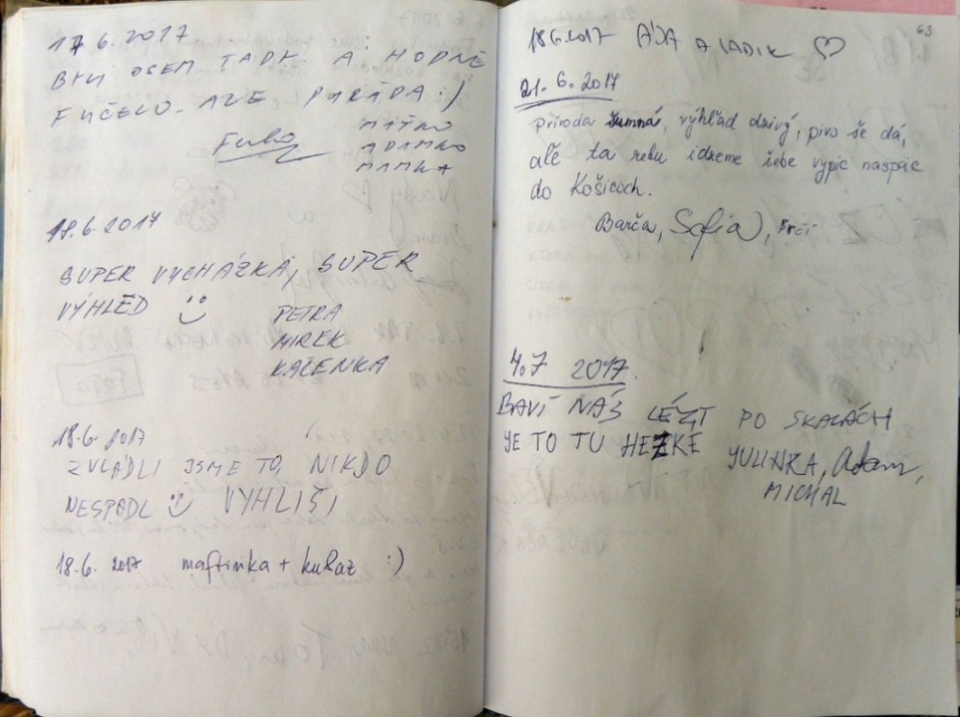 17.6.2017
BYLI JSEM TADY. A HODNĚ
FUČELO. ALE PARÁDA :)
MAŤKO
ADAMKO
MAMKA
18.6.2017
SUPER VYCHÁZKA, SUPER
VÝHLED
PETRA
MIREK
KAČENKA
18.6. 2017
ZVLÁDLI JSME TO, NIKDO
NESPADL VYHLIŠI
18.6. 2017 :)
63
18.6.2017 ÁJA A LADIK ♡
21. 6. 2017
příroda šumná, výhľad dzivý, pivo še dá,
aľe ta rebu idzeme šebe vypic naspäc
do Košicoch.
Barča, Sofia,
4.7 2017.
BAVÍ NÁS LÉZT PO SKALÁCH
JE TO TU HEZKE JULINKA, Adam,
MICHAL